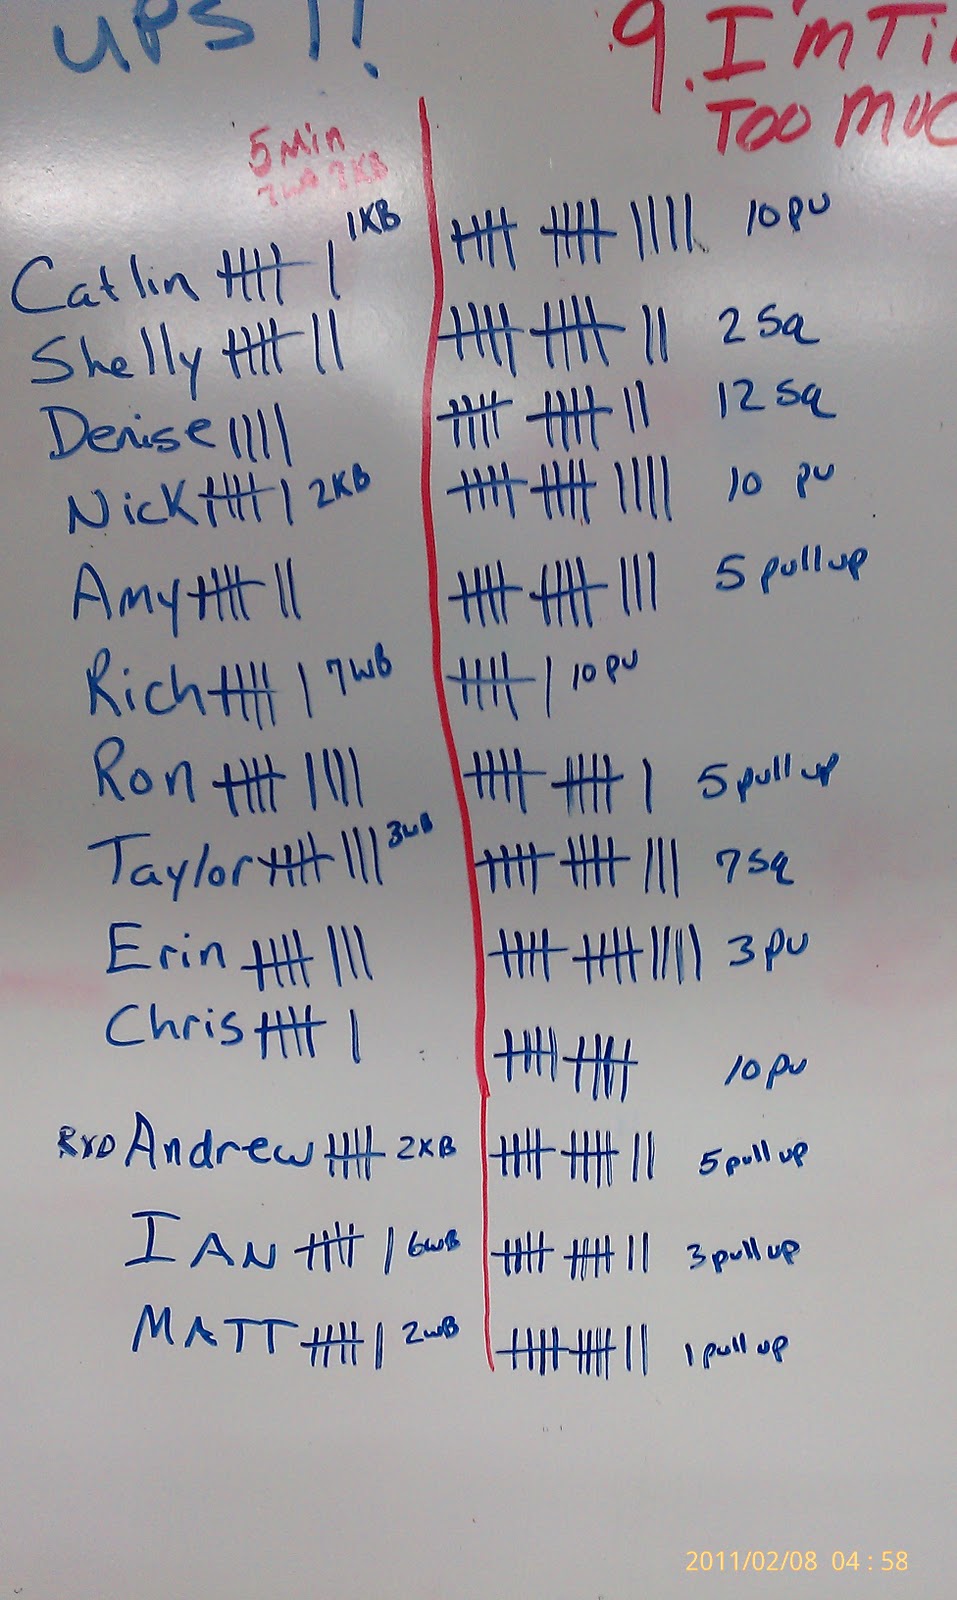 UPS !!
9. I'm Ti
Too muc
5 Min
7KB
Catlin 卌 | 1KB 卌 卌 |||| 10 pu
Shelly 卌 || 卌 卌 || 2 Sq
Denise |||| 卌 卌 || 12 sq
Nick 卌 | 2KB 卌 卌 |||| 10 pu
Amy 卌 || 卌 卌 ||| 5 pull up
Rich 卌 | 7WB 卌 | 10 pu
Ron 卌 |||| 卌 卌 | 5 pull up
Taylor 卌 ||| 3WB 卌 卌 ||| 7 sq
Erin 卌 ||| 卌 卌 ||||| 3 pu
Chris 卌 | 卌 卌 10 pu
RXD Andrew 卌 2KB 卌 卌 || 5 pull up
IAN 卌 | 6WB 卌 卌 || 3 pull up
MATT 卌 | 2WB 卌 卌 || 1 pull up
2011/02/08 04:58